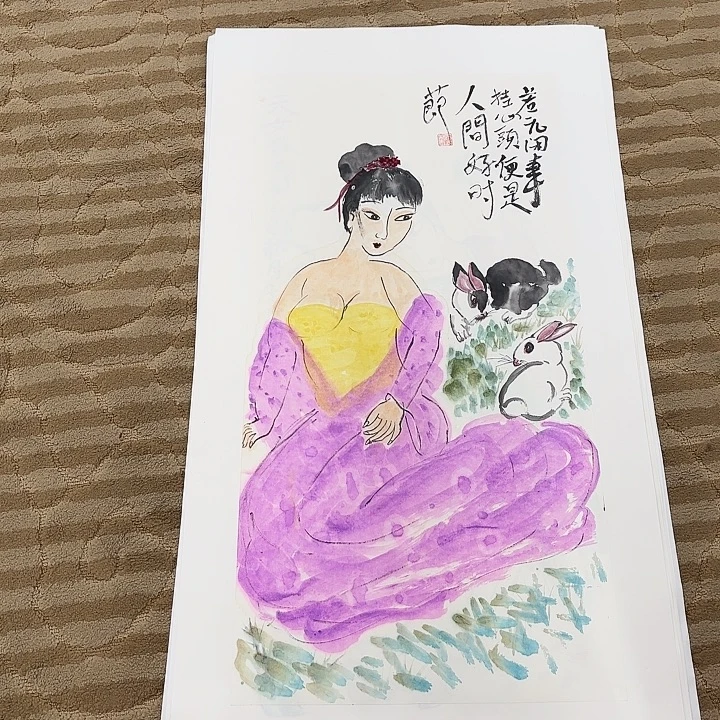 若无闲事
挂心頭便是
人間好时
節